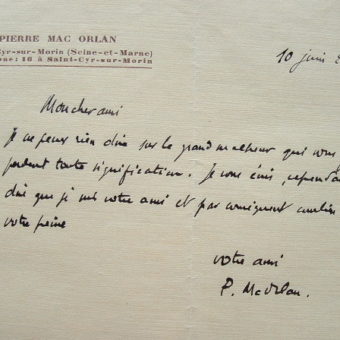 PIERRE MAC ORLAN
Cyr-sur-Morin (Seine-et-Marne)
one : 16 à Saint-Cyr-sur-Morin
10 juin
Mon cher ami
Je ne peux rien dire sur le grand malheur qui vous
perdent toute signification. Je vous écris, cependant
dire que je suis votre ami et par conséquent
votre peine
votre ami
P. Mac Orlan.